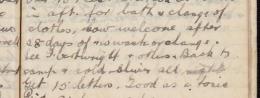 in apt. for bath & change of
clothes, how welcome after
28 days of no wash or change.
See Bortwright & others. Back to
camp & cold, blows all night.
Get 15 letters. Good as a tonic